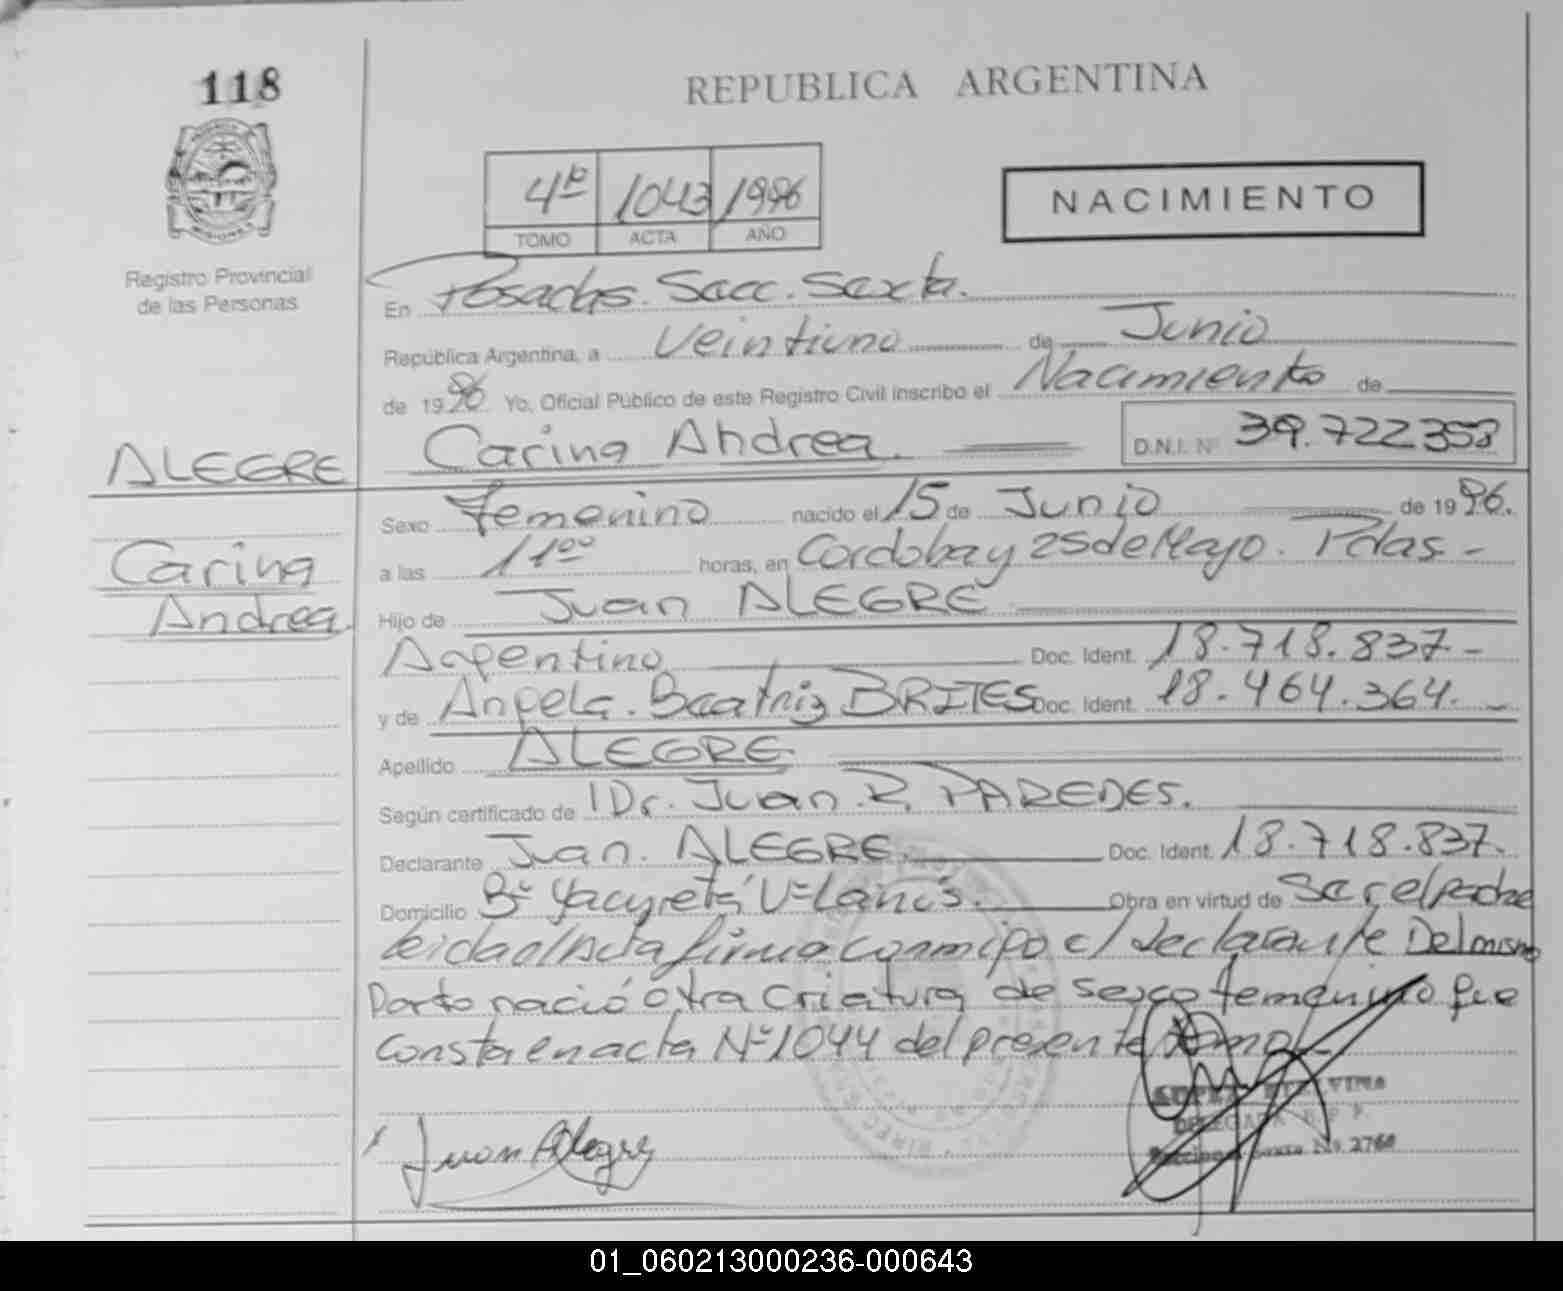 118
REPUBLICA ARGENTINA
4º 1043 1996
TOMO ACTA AÑO
NACIMIENTO
Registro Provincial
de las Personas
En Posadas. Secc. Sexta.
República Argentina, a Veintiuno de Junio
de 1996 Yo, Oficial Público de este Registro Civil inscribo el Nacimiento de
ALEGRE Carina Andrea. D.N.I. Nº 39.722.353
Sexo Femenino nacido el 15 de Junio de 1996.
Carina a las 11⁰⁰ horas, en Cordoba y 25 de Mayo. Pdas -
Andrea Hijo de Juan ALEGRE
Argentino Doc. Ident. 18.718.837-
y de Angela. Beatriz BRITES Doc. Ident. 18.464.364. -
Apellido ALEGRE
Según certificado de Dr. Juan R. PAREDES.
Declarante Juan. ALEGRE. Doc. Ident. 18.718.837.
Domicilio Bº Yacyretá Vº Lanús. Obra en virtud de Ser el Padre
leida el Acta firma conmigo el declarante Del mismo
Parto nació otra Criatura de sexo femenino que
Consta en acta Nº 1044 del presente
Juan Alegre
DELEGADA R. P. P.
Seccional Sexta No. 2760
01_060213000236-000643